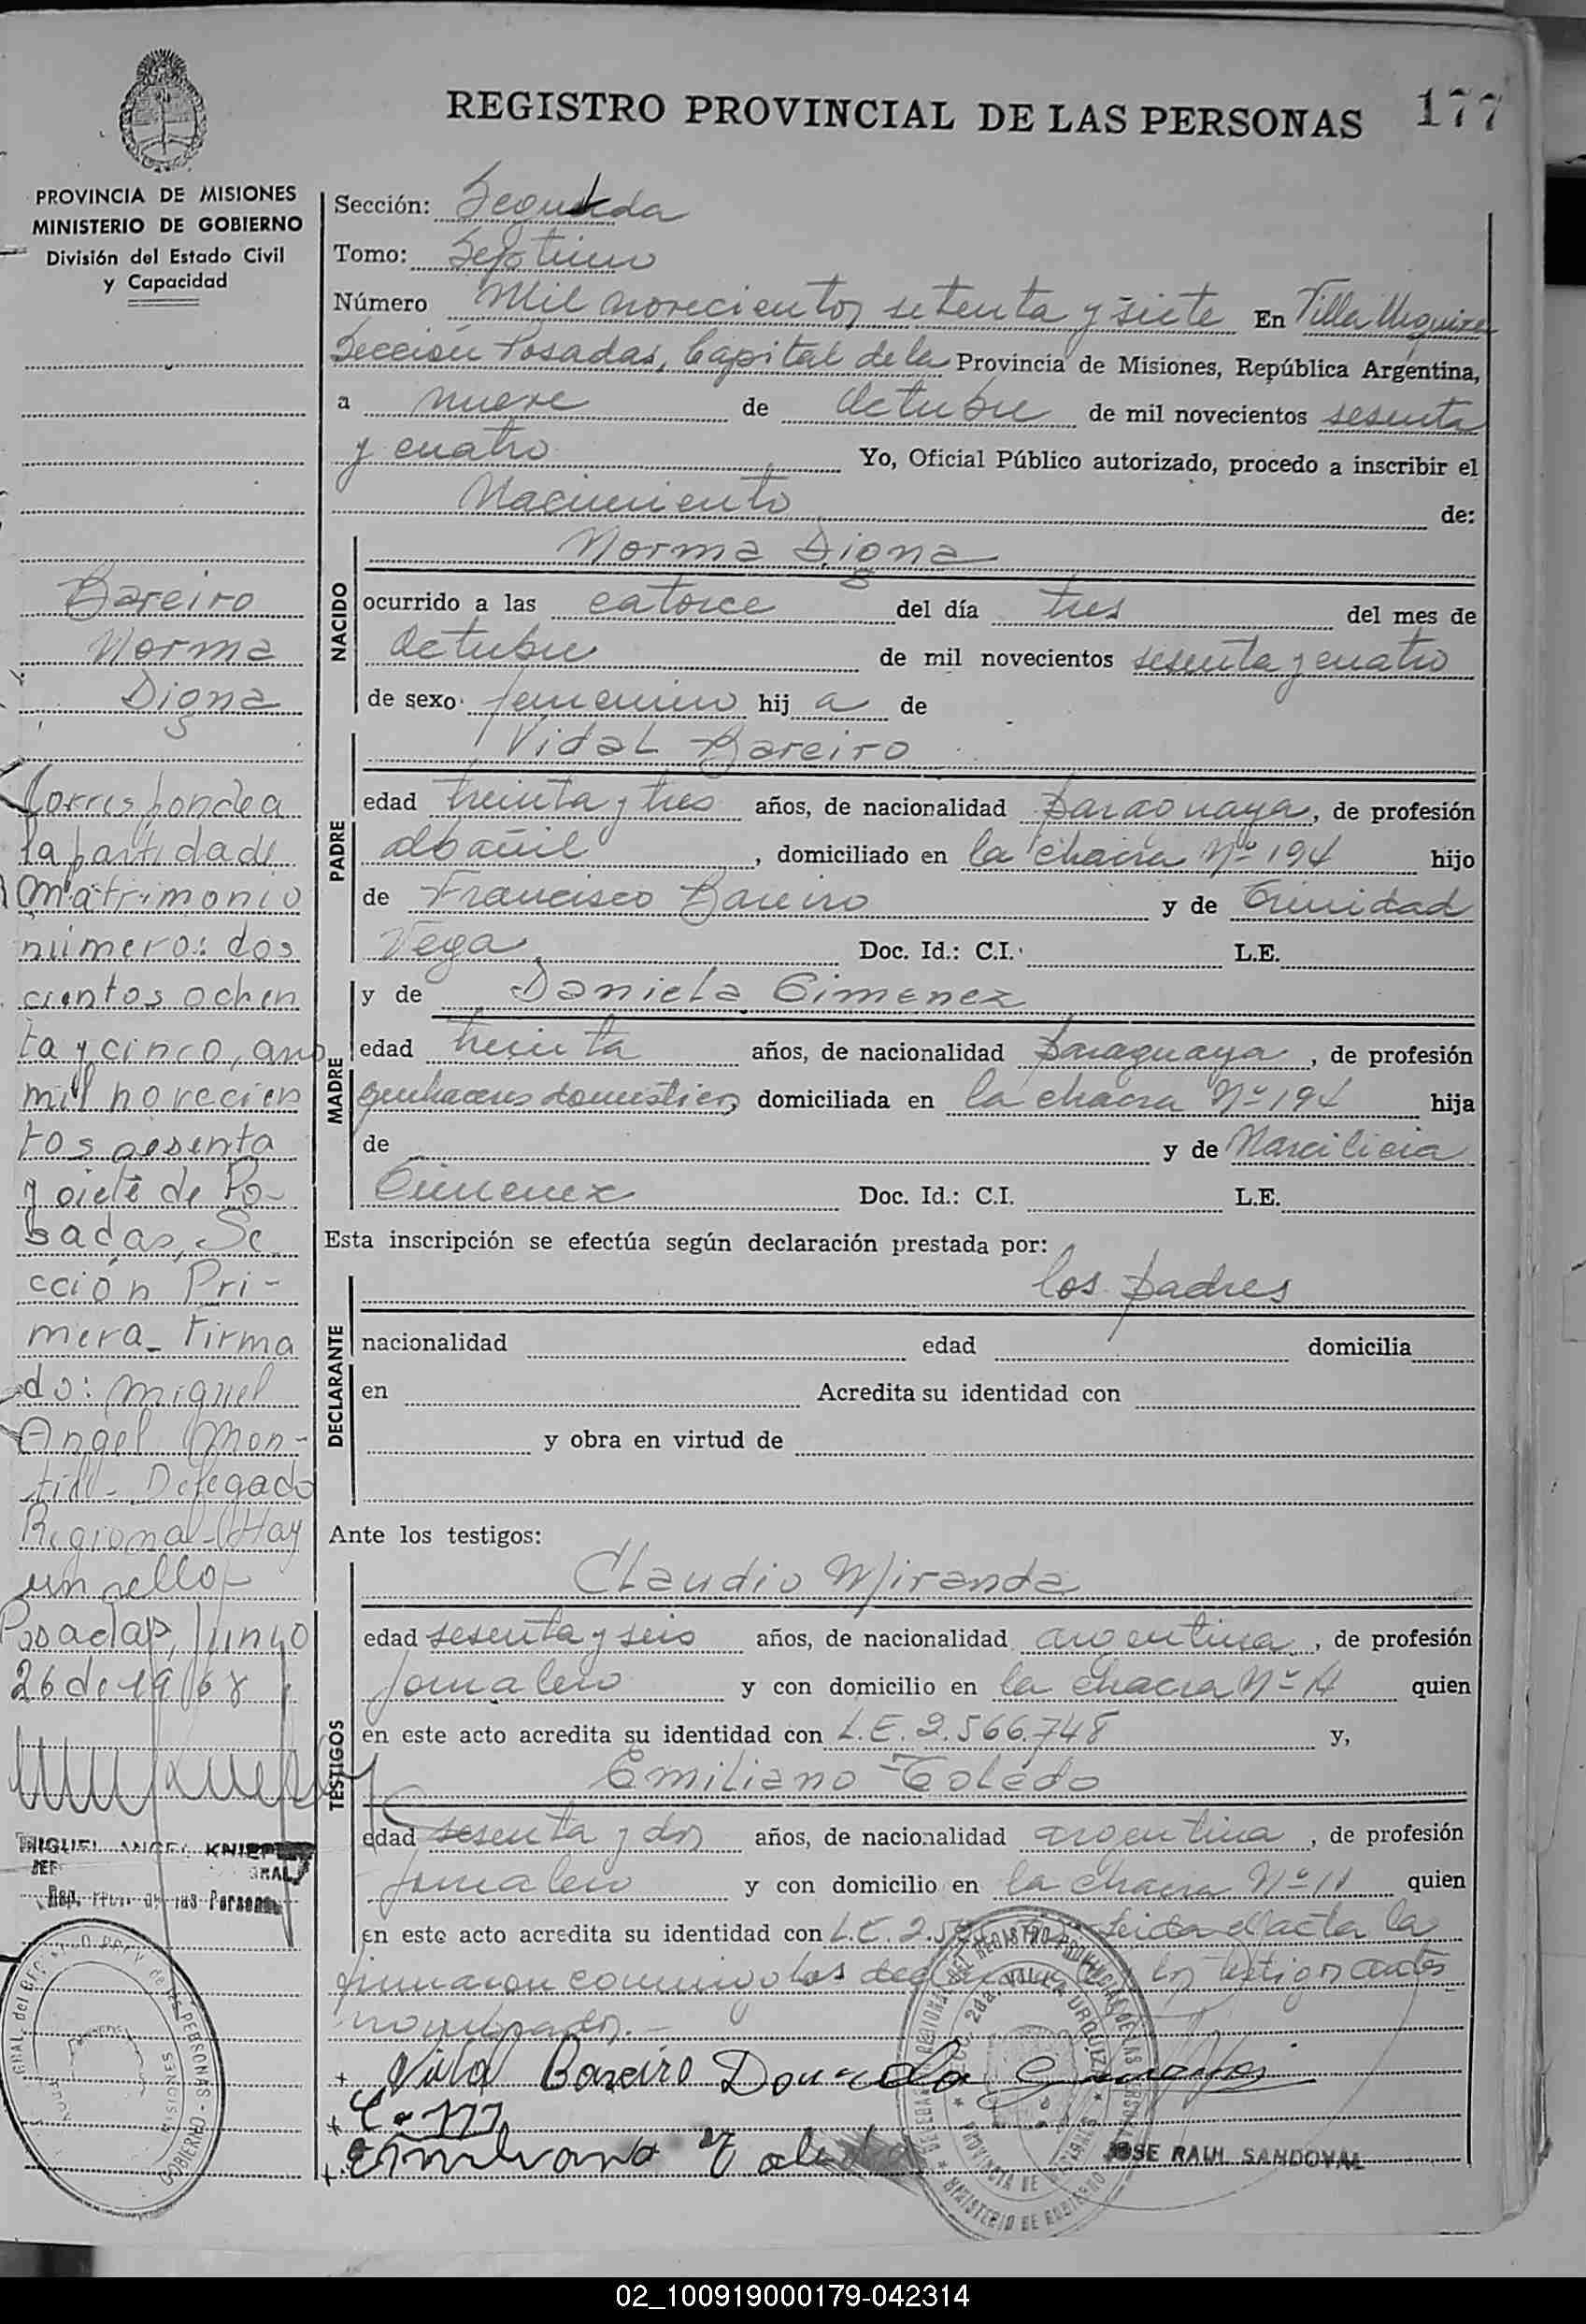 REGISTRO PROVINCIAL DE LAS PERSONAS 177
PROVINCIA DE MISIONES
MINISTERIO DE GOBIERNO
División del Estado Civil
y Capacidad
Bareiro
Norma
Digna
Corresponde a
la partida de
matrimonio
número: dos
cientos ochen
ta y cinco, año
mil novecien
tos sesenta
y siete de Po-
sadas, Se
cción Pri-
mera_ Firma
do: Miguel
Angel Mon-
Delegado
Regional - Hay
un sello -
Posadas, Junio
26 de 1968
MIGUEL ANGEL
Sección: Segunda
Tomo: Septimo
Número Mil novecientos setenta y siete En Villa Urquiza
Sección Posadas, Capital de la Provincia de Misiones, República Argentina,
a nueve de Octubre de mil novecientos sesenta
y cuatro Yo, Oficial Público autorizado, procedo a inscribir el
Nacimiento de:
NACIDO
Norma Digna
ocurrido a las catorce del día tres del mes de
Octubre de mil novecientos sesenta y cuatro
de sexo femenino hij a de
PADRE
Vidal Bareiro
edad treinta y tres años, de nacionalidad paraguaya, de profesión
albañil, domiciliado en la chacra Nº 194 hijo
de Francisco Bareiro y de Trinidad
Vega Doc. Id.: C.I. L.E.
MADRE
y de Daniela Gimenez
edad treinta años, de nacionalidad paraguaya, de profesión
quehaceres domésticos domiciliada en la chacra Nº 194 hija
de y de Marcilicia
Gimenez Doc. Id.: C.I. L.E.
Esta inscripción se efectúa según declaración prestada por:
DECLARANTE
los padres
nacionalidad edad domicilia
en Acredita su identidad con
y obra en virtud de
Ante los testigos:
TESTIGOS
Claudio Miranda
edad sesenta y seis años, de nacionalidad argentina, de profesión
jornalero y con domicilio en la chacra Nº quien
en este acto acredita su identidad con L.E. 2.566.748 y,
Emiliano Toledo
edad sesenta y dos años, de nacionalidad argentina, de profesión
jornalero y con domicilio en la chacra Nº 11 quien
en este acto acredita su identidad con L.E. 2. Leida el acta la
firmaron conmigo los los testigos antes
nombrados.-
Vidal Bareiro Daniela
Emiliano Toledo
JOSE RAUL SANDOVAL
02_100919000179-042314